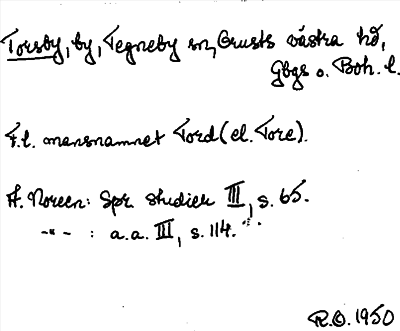 Torsby, by, Tegneby sn, Orusts västra hd,
Gbgs o. Boh. l.
F.l. mansnamnet Tord (el. Tore).
A. Noreen: Spr. studier III, s. 65.
-"- : a.a. III, s. 114.
R.O. 1950